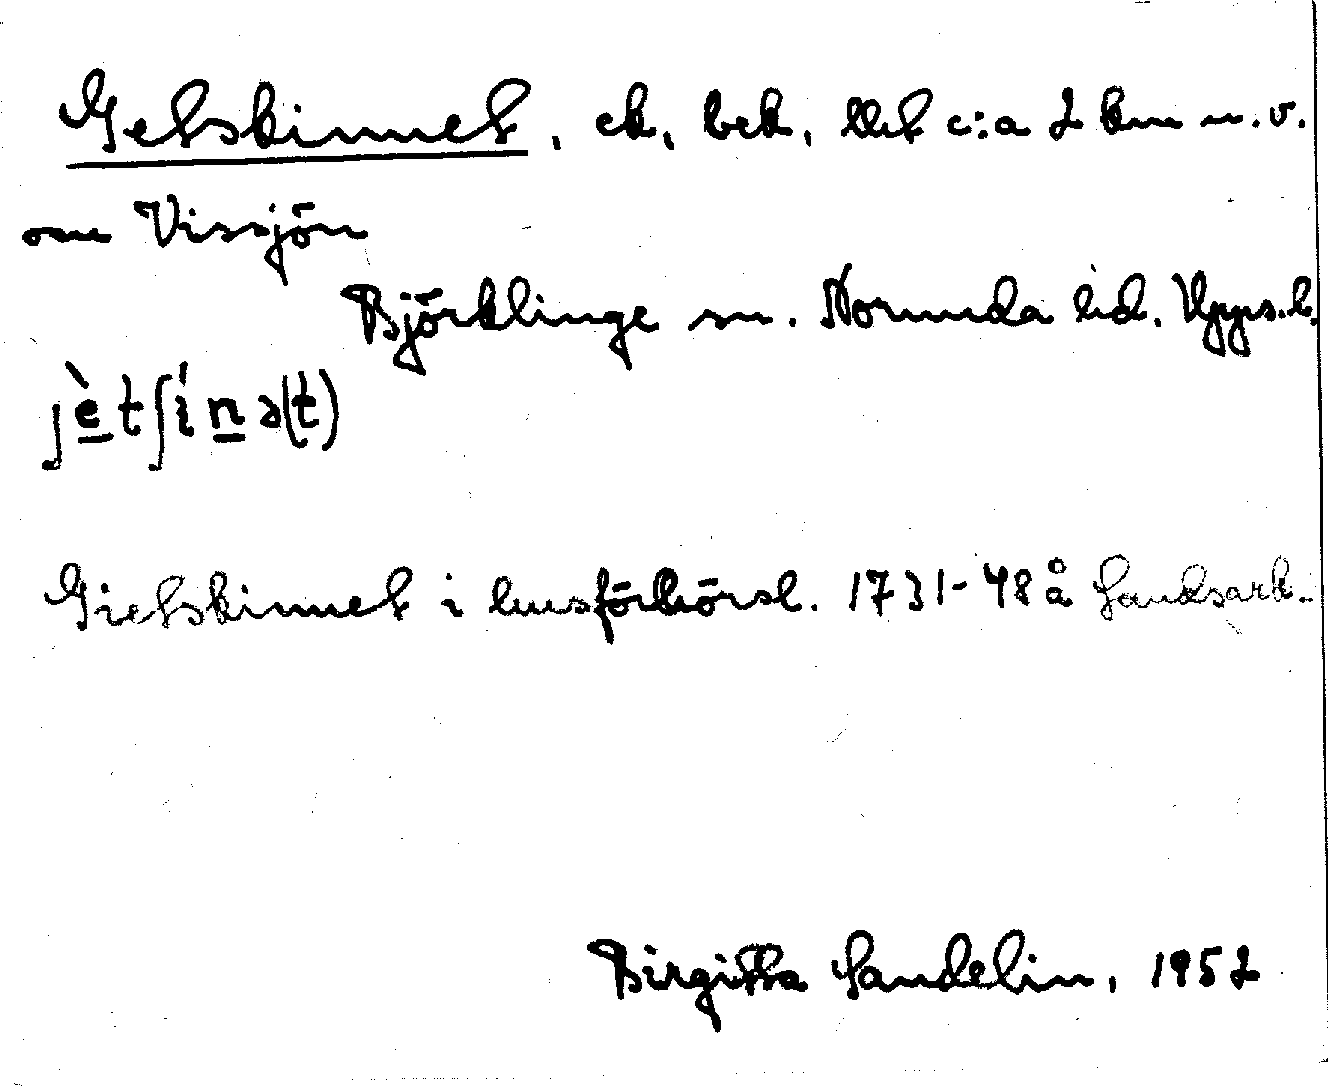 Getskinnet, ek, bek, Utl c:a 2 km n.v.
om Vissjön
Björklinge sn. Norunda hd. Upps.l.
jètʃínə(t)
Gietskinnet i husförhörsl. 1731-48 å Landsark.
Birgitta Sandelin, 1952